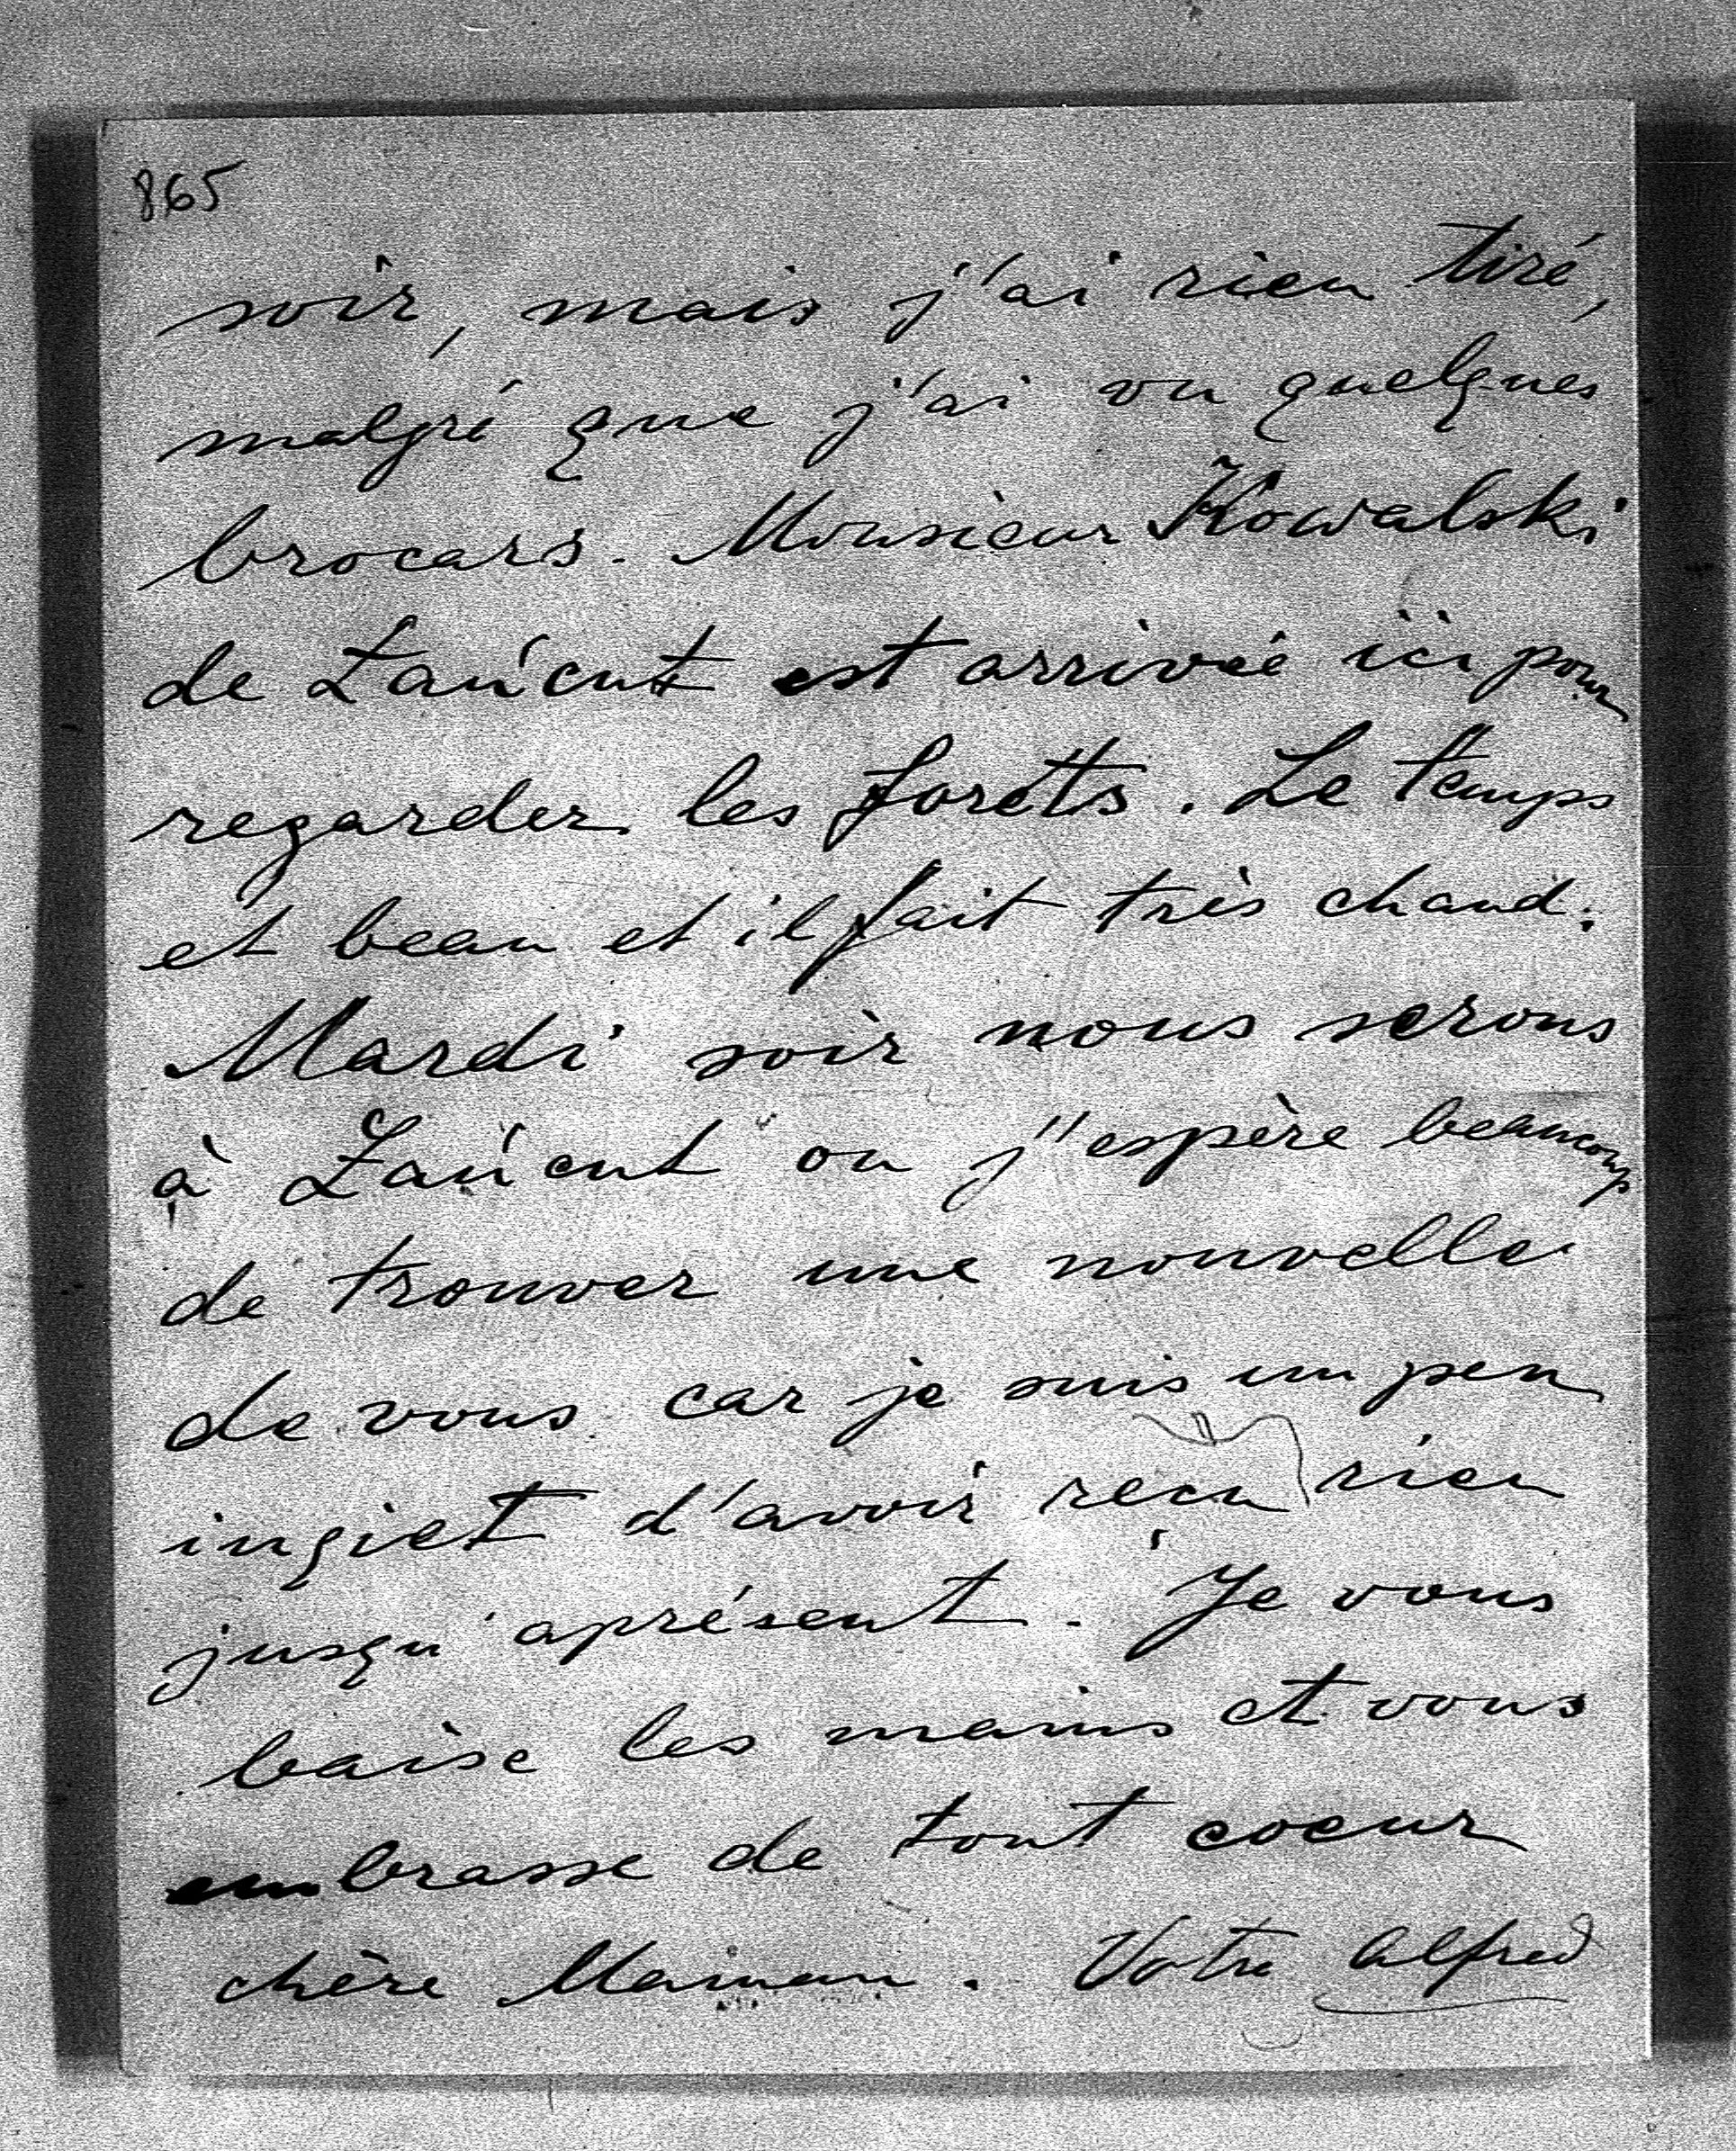 865
soir, mais j'ai rien tiré,
malgré que j'ai vu quelques
brocars. Monsieur Kowalski
de Łańcut est arrivée ici pour
regarder les forêts. Le temps
et beau et il fait très chaud.
Mardi soir nous serons
à Łańcut ou j'espère beaucoup
de trouver une nouvelle
de vous car je suis un peu
inqiet d'avoir reçu rien
jusqu'aprésent. Je vous
baise les mains et vous
embrasse de tout coeur
chère Maman. Votre Alfred